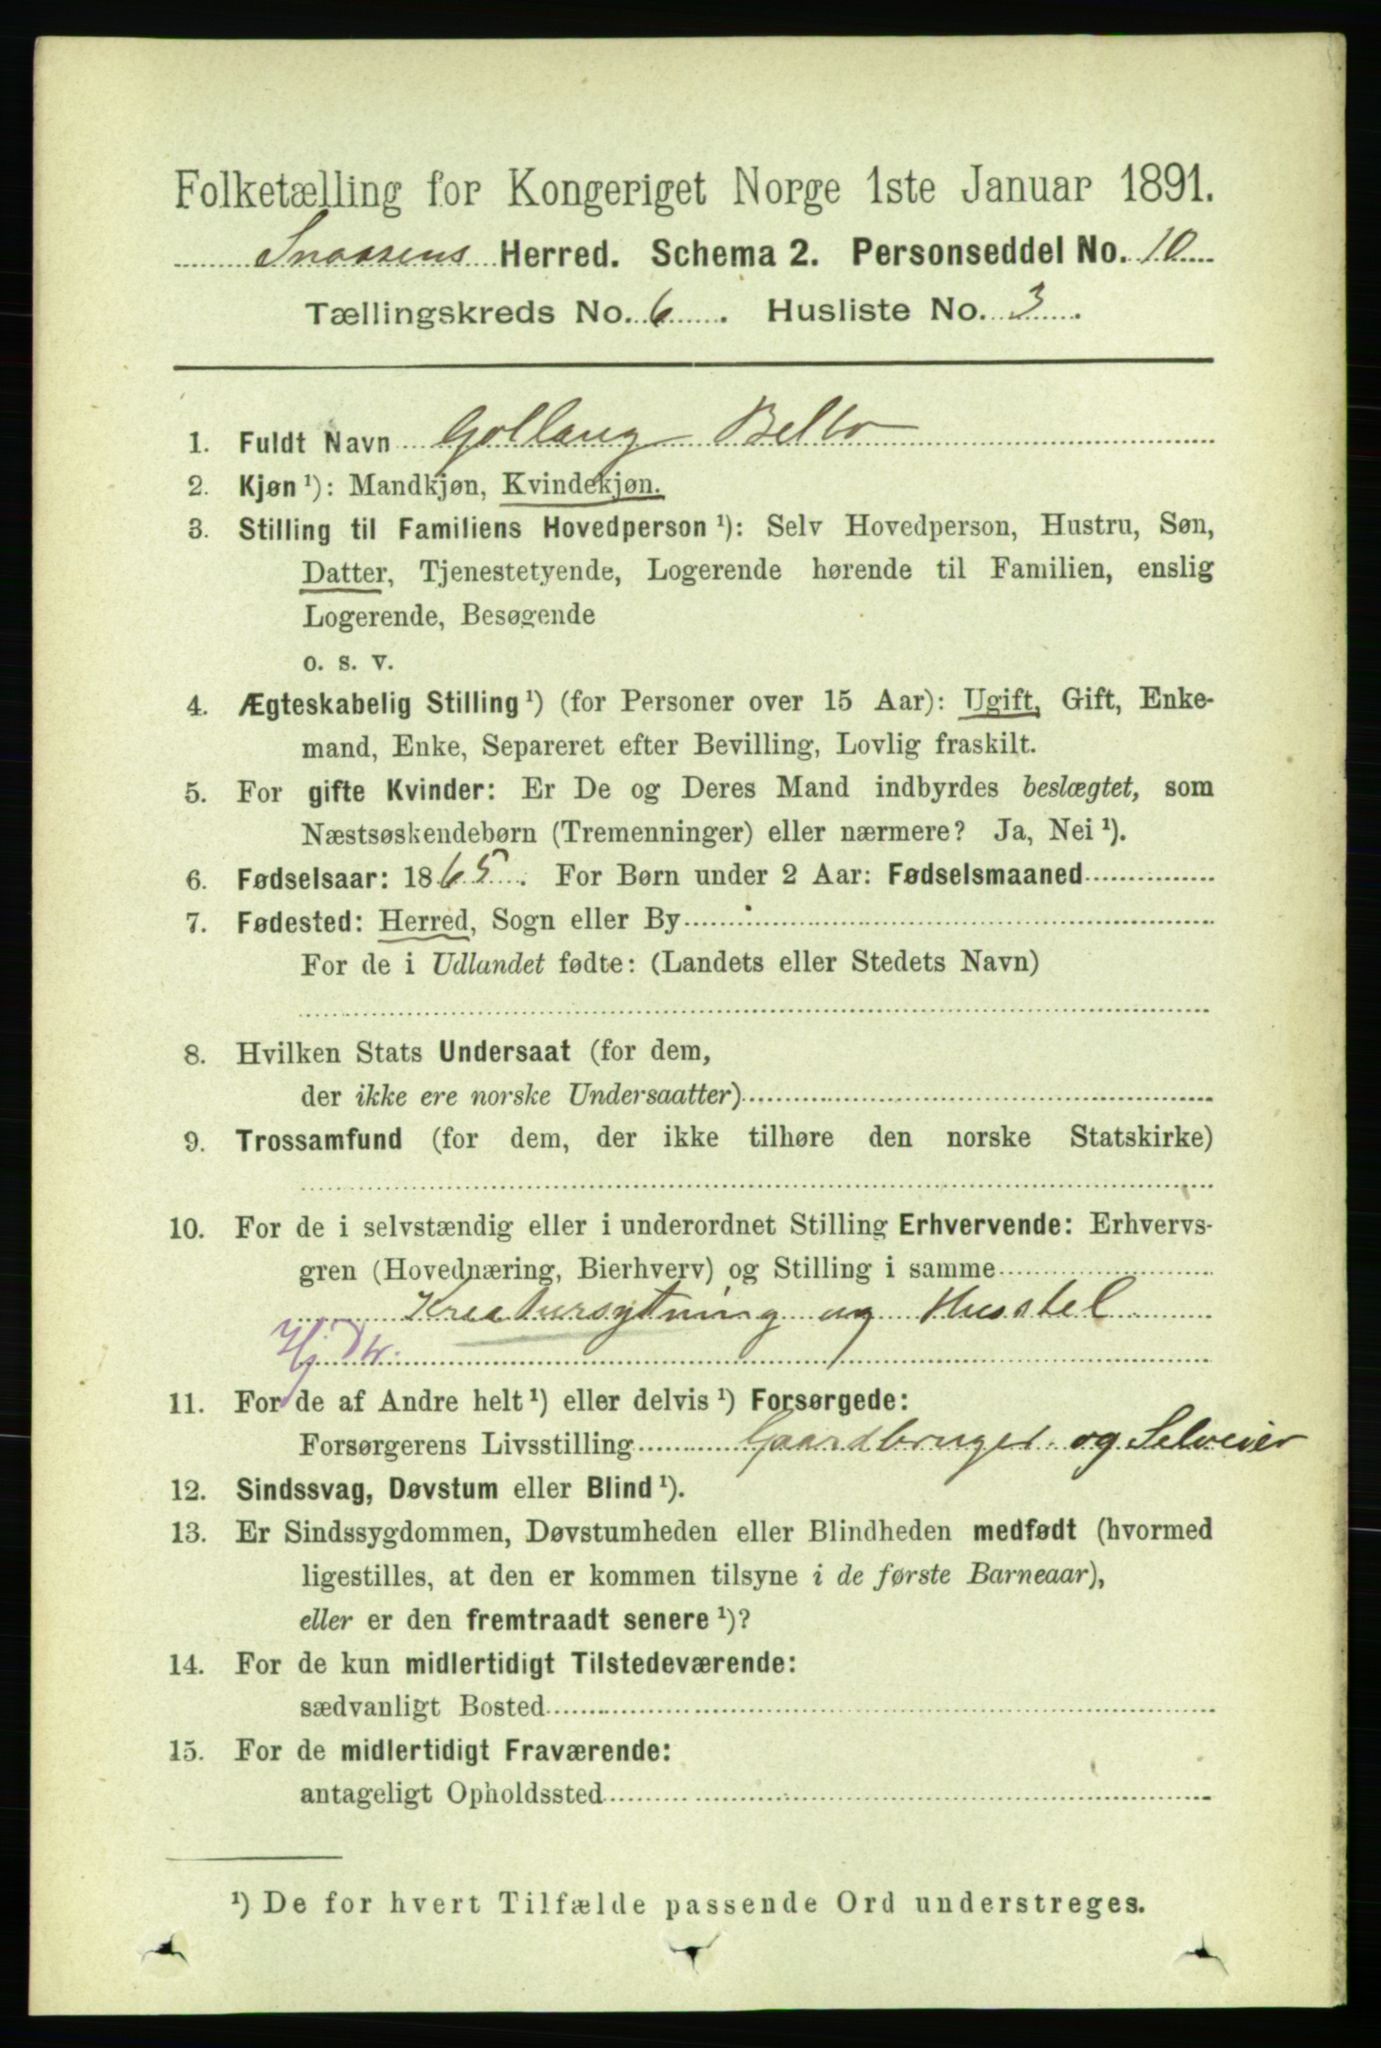 Folketælling for Kongeriget Norge 1ste Januar 1891.
Snaasens Herred. Schema 2. Personseddel No. 10
Tællingskreds No. 6. Husliste No. 3.
1. Fuldt Navn Gollaug Belbo
2. Kjøn ¹): Mandkjøn, Kvindekjøn.
3. Stilling til Familiens Hovedperson ¹): Selv Hovedperson, Hustru, Søn,
Datter, Tjenestetyende, Logerende hørende til Familien, enslig
Logerende, Besøgende
o. s. v.
4. Ægteskabelig Stilling ¹) (for Personer over 15 Aar): Ugift, Gift, Enke-
mand, Enke, Separeret efter Bevilling, Lovlig fraskilt.
5. For gifte Kvinder: Er De og Deres Mand indbyrdes beslægtet, som
Næstsøskendebørn (Tremenninger) eller nærmere? Ja, Nei ¹).
6. Fødselsaar: 1865. For Børn under 2 Aar: Fødselsmaaned
7. Fødested: Herred, Sogn eller By
For de i Udlandet fødte: (Landets eller Stedets Navn)
8. Hvilken Stats Undersaat (for dem,
der ikke ere norske Undersaatter)
9. Trossamfund (for dem, der ikke tilhøre den norske Statskirke)
10. For de i selvstændig eller i underordnet Stilling Erhvervende: Erhvervs-
gren (Hovednæring, Bierhverv) og Stilling i samme
Kreatursytning og Husstel
11. For de af Andre helt ¹) eller delvis ¹) Forsørgede:
Forsørgerens Livsstilling Gaardbruger og Selveier
12. Sindssvag, Døvstum eller Blind ¹).
13. Er Sindssygdommen, Døvstumheden eller Blindheden medfødt (hvormed
ligestilles, at den er kommen tilsyne i de første Barneaar),
eller er den fremtraadt senere ¹)?
14. For de kun midlertidigt Tilstedeværende:
sædvanligt Bosted
15. For de midlertidigt Fraværende:
antageligt Opholdssted
¹) De for hvert Tilfælde passende Ord understreges.